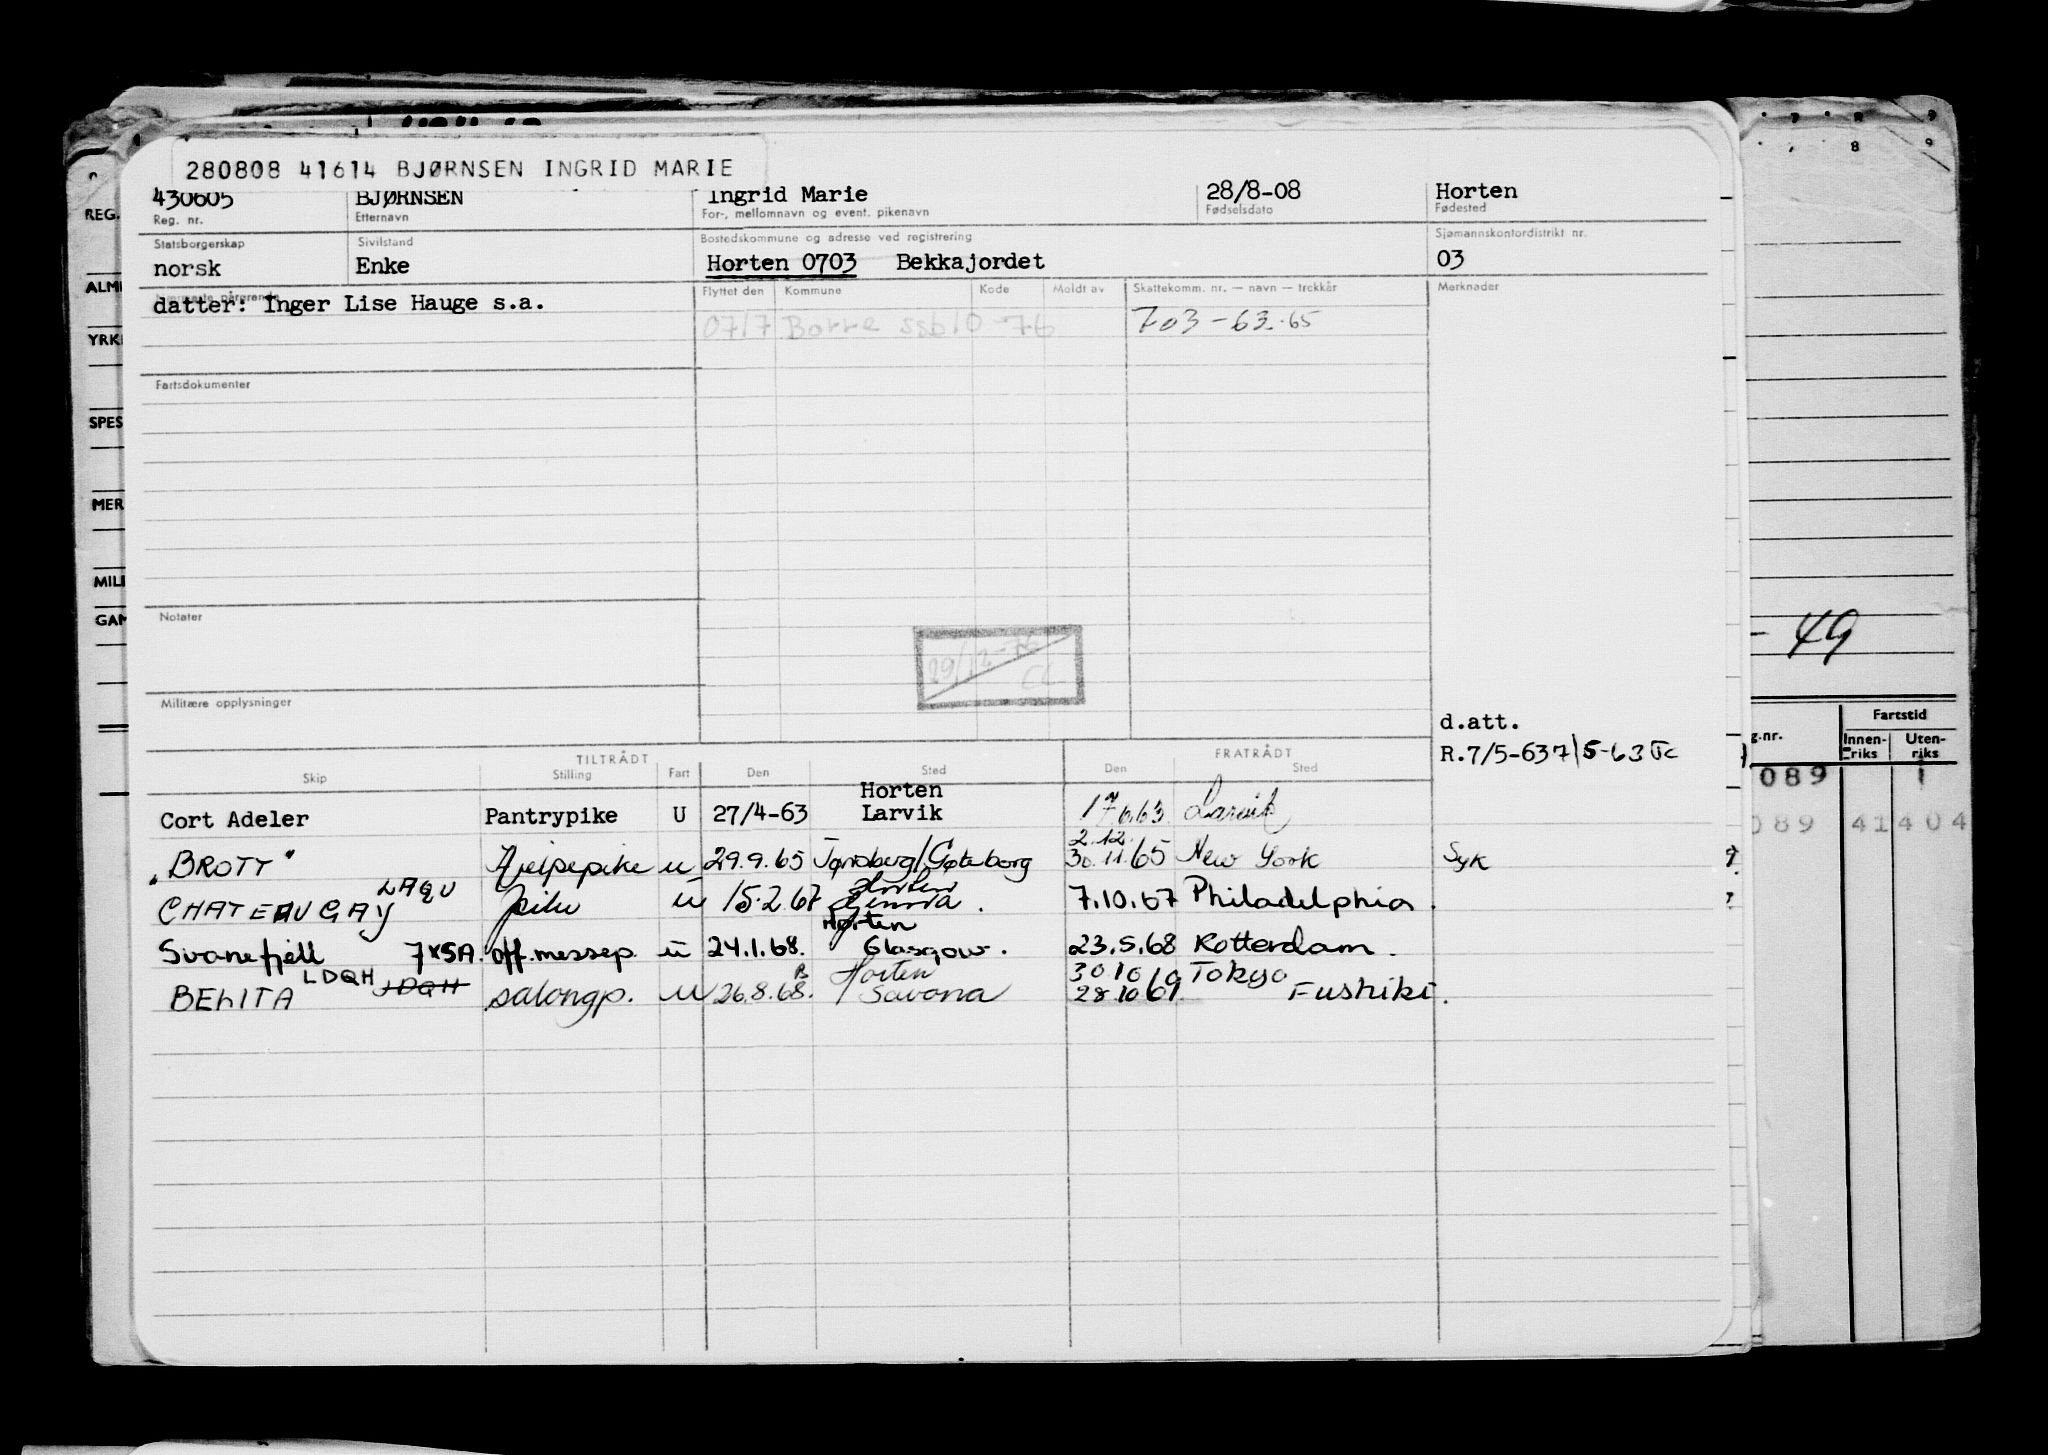 280808 41614 BJØRNSEN INGRID MARIE
430605 BJØRNSEN Ingrid Marie 28/8-08 Horten
Reg. nr. Etternavn For-, mellomnavn og event. pikenavn Fødselsdato Fødested
Statsborgerskap Sivilstand Bostedskommune og adresse ved registrering Sjømannskontordistrikt nr.
norsk Enke Horten 0703 Bekkajordet 03
Nærmeste pårørende Flyttet den Kommune Kode Meldt av Skattekomm. nr. — navn — trekkår Merknader
datter: Inger Lise Hauge s.a.
0717 Borre ssb 10-76 703-63.-65
Fartsdokumenter
Notater
29/12-76
CL
Militære opplysninger
d.att.
R.7/5-63 7/5-63
TILTRÅDT FRATRÅDT
Skip Stilling Fart Den Sted Den Sted
Horten
Cort Adeler Pantrypike U 27/4-63 Larvik 17/6.63 Larvik
2.12.
"BROTT" Hjelpepike u 29.9.65 Tønsberg/Gøteborg 30.11.65 New York Syk
LAQU Horten
CHATEAUGAY pike u 15.2.67 Genova. 7.10.67 Philadelphia.
Horten
Svanefjell 7×5A. off.messep. u 24.1.68. Glasgow. 23.5.68 Rotterdam.
LDQH Horten 30 10 Tokyo
BELITA salongp. u 26.8.68. Savona 28.10.69. Fushiki.
REG.
ALM
YRK
SPES
MER
MILI
GAM
8 9
- 49
g.nr. Fartstid
Innenriks Utenriks
089 1
089 41404